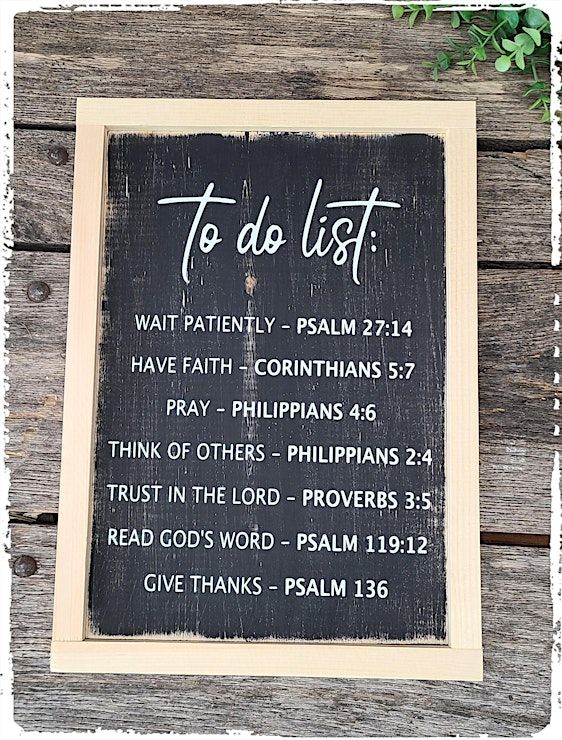 to do list:
WAIT PATIENTLY – PSALM 27:14
HAVE FAITH – CORINTHIANS 5:7
PRAY – PHILIPPIANS 4:6
THINK OF OTHERS – PHILIPPIANS 2:4
TRUST IN THE LORD – PROVERBS 3:5
READ GOD'S WORD – PSALM 119:12
GIVE THANKS – PSALM 136